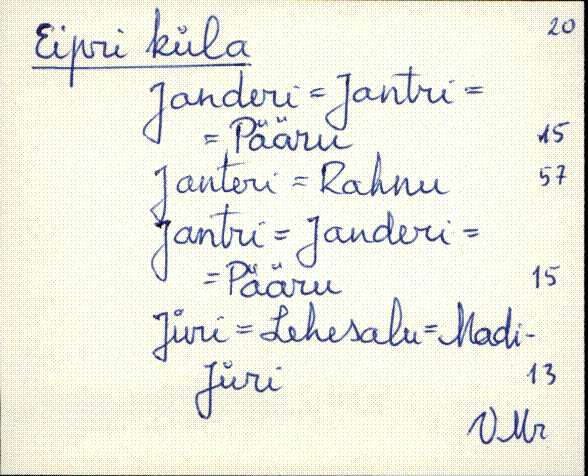 Eipri küla 20
Janderi = Jantri =
= Pääru 15
Janteri = Rahnu 57
Jantri = Janderi =
= Pääru 15
Jüri = Lehesalu = Madi-
Jüri 13
VMr